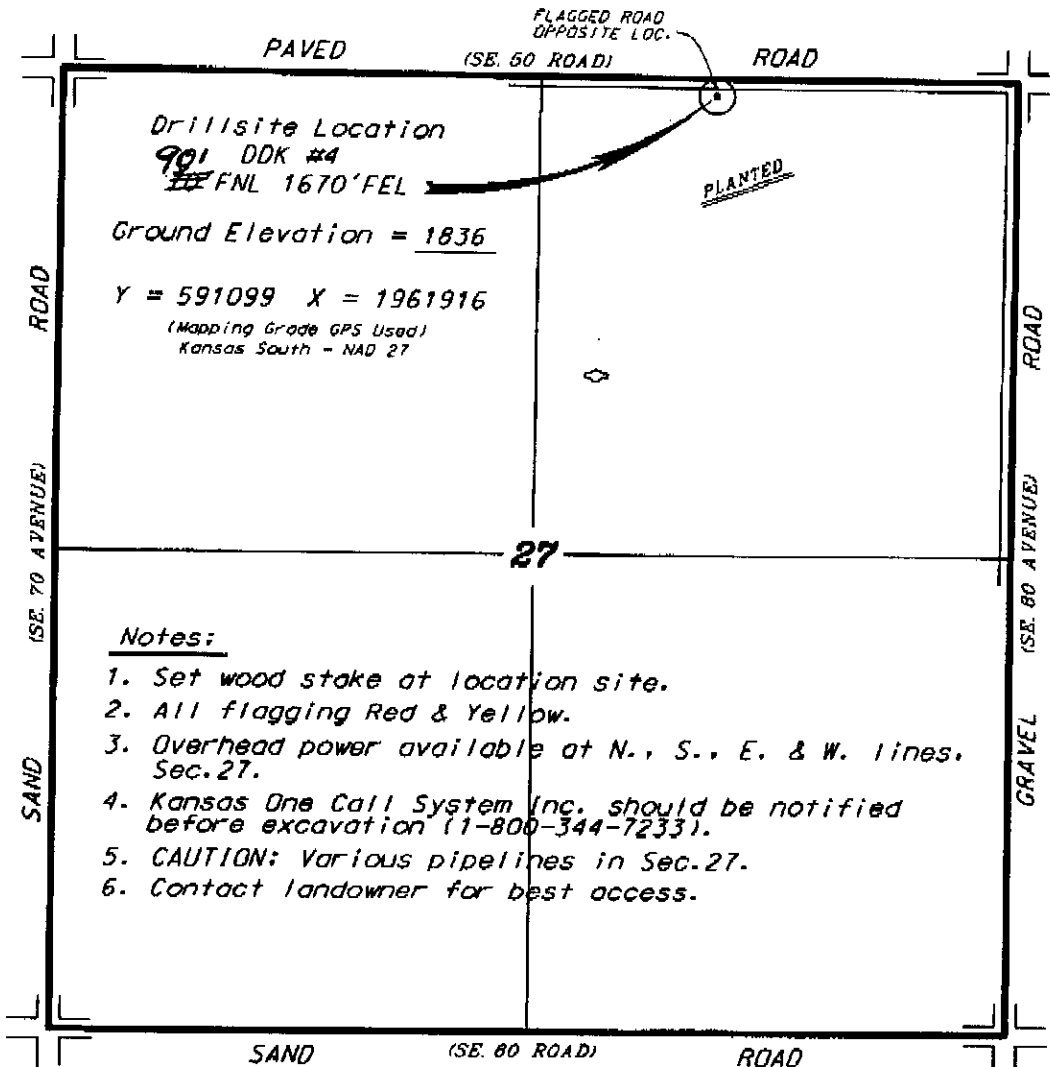 FLAGGED ROAD
OPPOSITE LOC.
PAVED (SE. 50 ROAD) ROAD
Drillsite Location
DDK #4
90' FNL 1670'FEL
PLANTED
Ground Elevation = 1836
Y = 591099 X = 1961916
(Mapping Grade GPS Used)
Kansas South - NAD 27
ROAD
(SE. 70 AVENUE)
SAND
ROAD
(SE. 80 AVENUE)
GRAVEL
27
Notes:
1. Set wood stake at location site.
2. All flagging Red & Yellow.
3. Overhead power available at N., S., E. & W. lines,
Sec.27.
4. Kansas One Call System Inc. should be notified
before excavation (1-800-344-7233).
5. CAUTION: Various pipelines in Sec.27.
6. Contact landowner for best access.
SAND (SE. 60 ROAD) ROAD